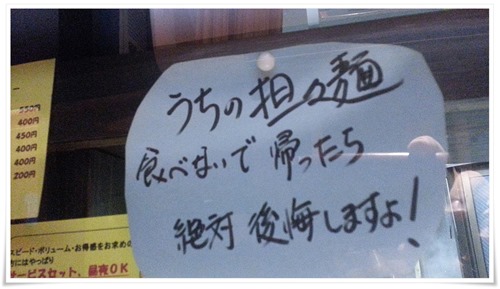 うちの担々麺
食べないで帰ったら
絶対後悔しますよ！
550円
400円
450円
400円
400円
200円
スピード・ボリューム・お得感をお求めの
方にはやっぱり
サービスセット、昼夜OK